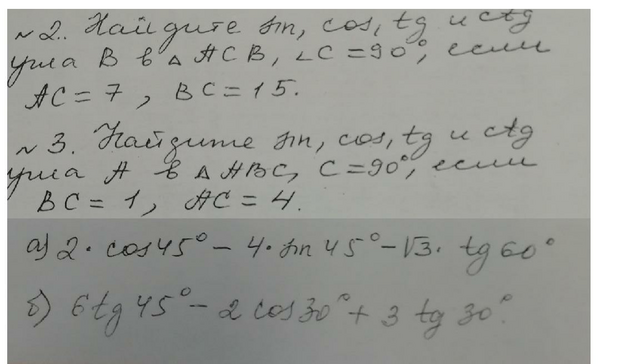 №2. Найдите sin, cos, tg и ctg
угла B в △ ACB, ∠C=90°, если
AC=7, BC=15.
№3. Найдите sin, cos, tg и ctg
угла A в △ ABC, C=90°, если
BC=1, AC=4.
а) 2·cos45°-4·sin45°-√3·tg60°
б) 6tg45°-2cos30°+3tg30°.